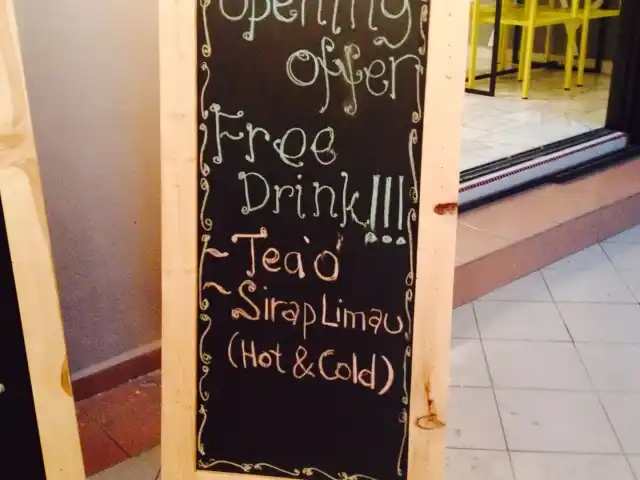 Opening
Offer
Free
Drink!!!
~ Tea'o'
~ Sirap Limau
(Hot & Cold)